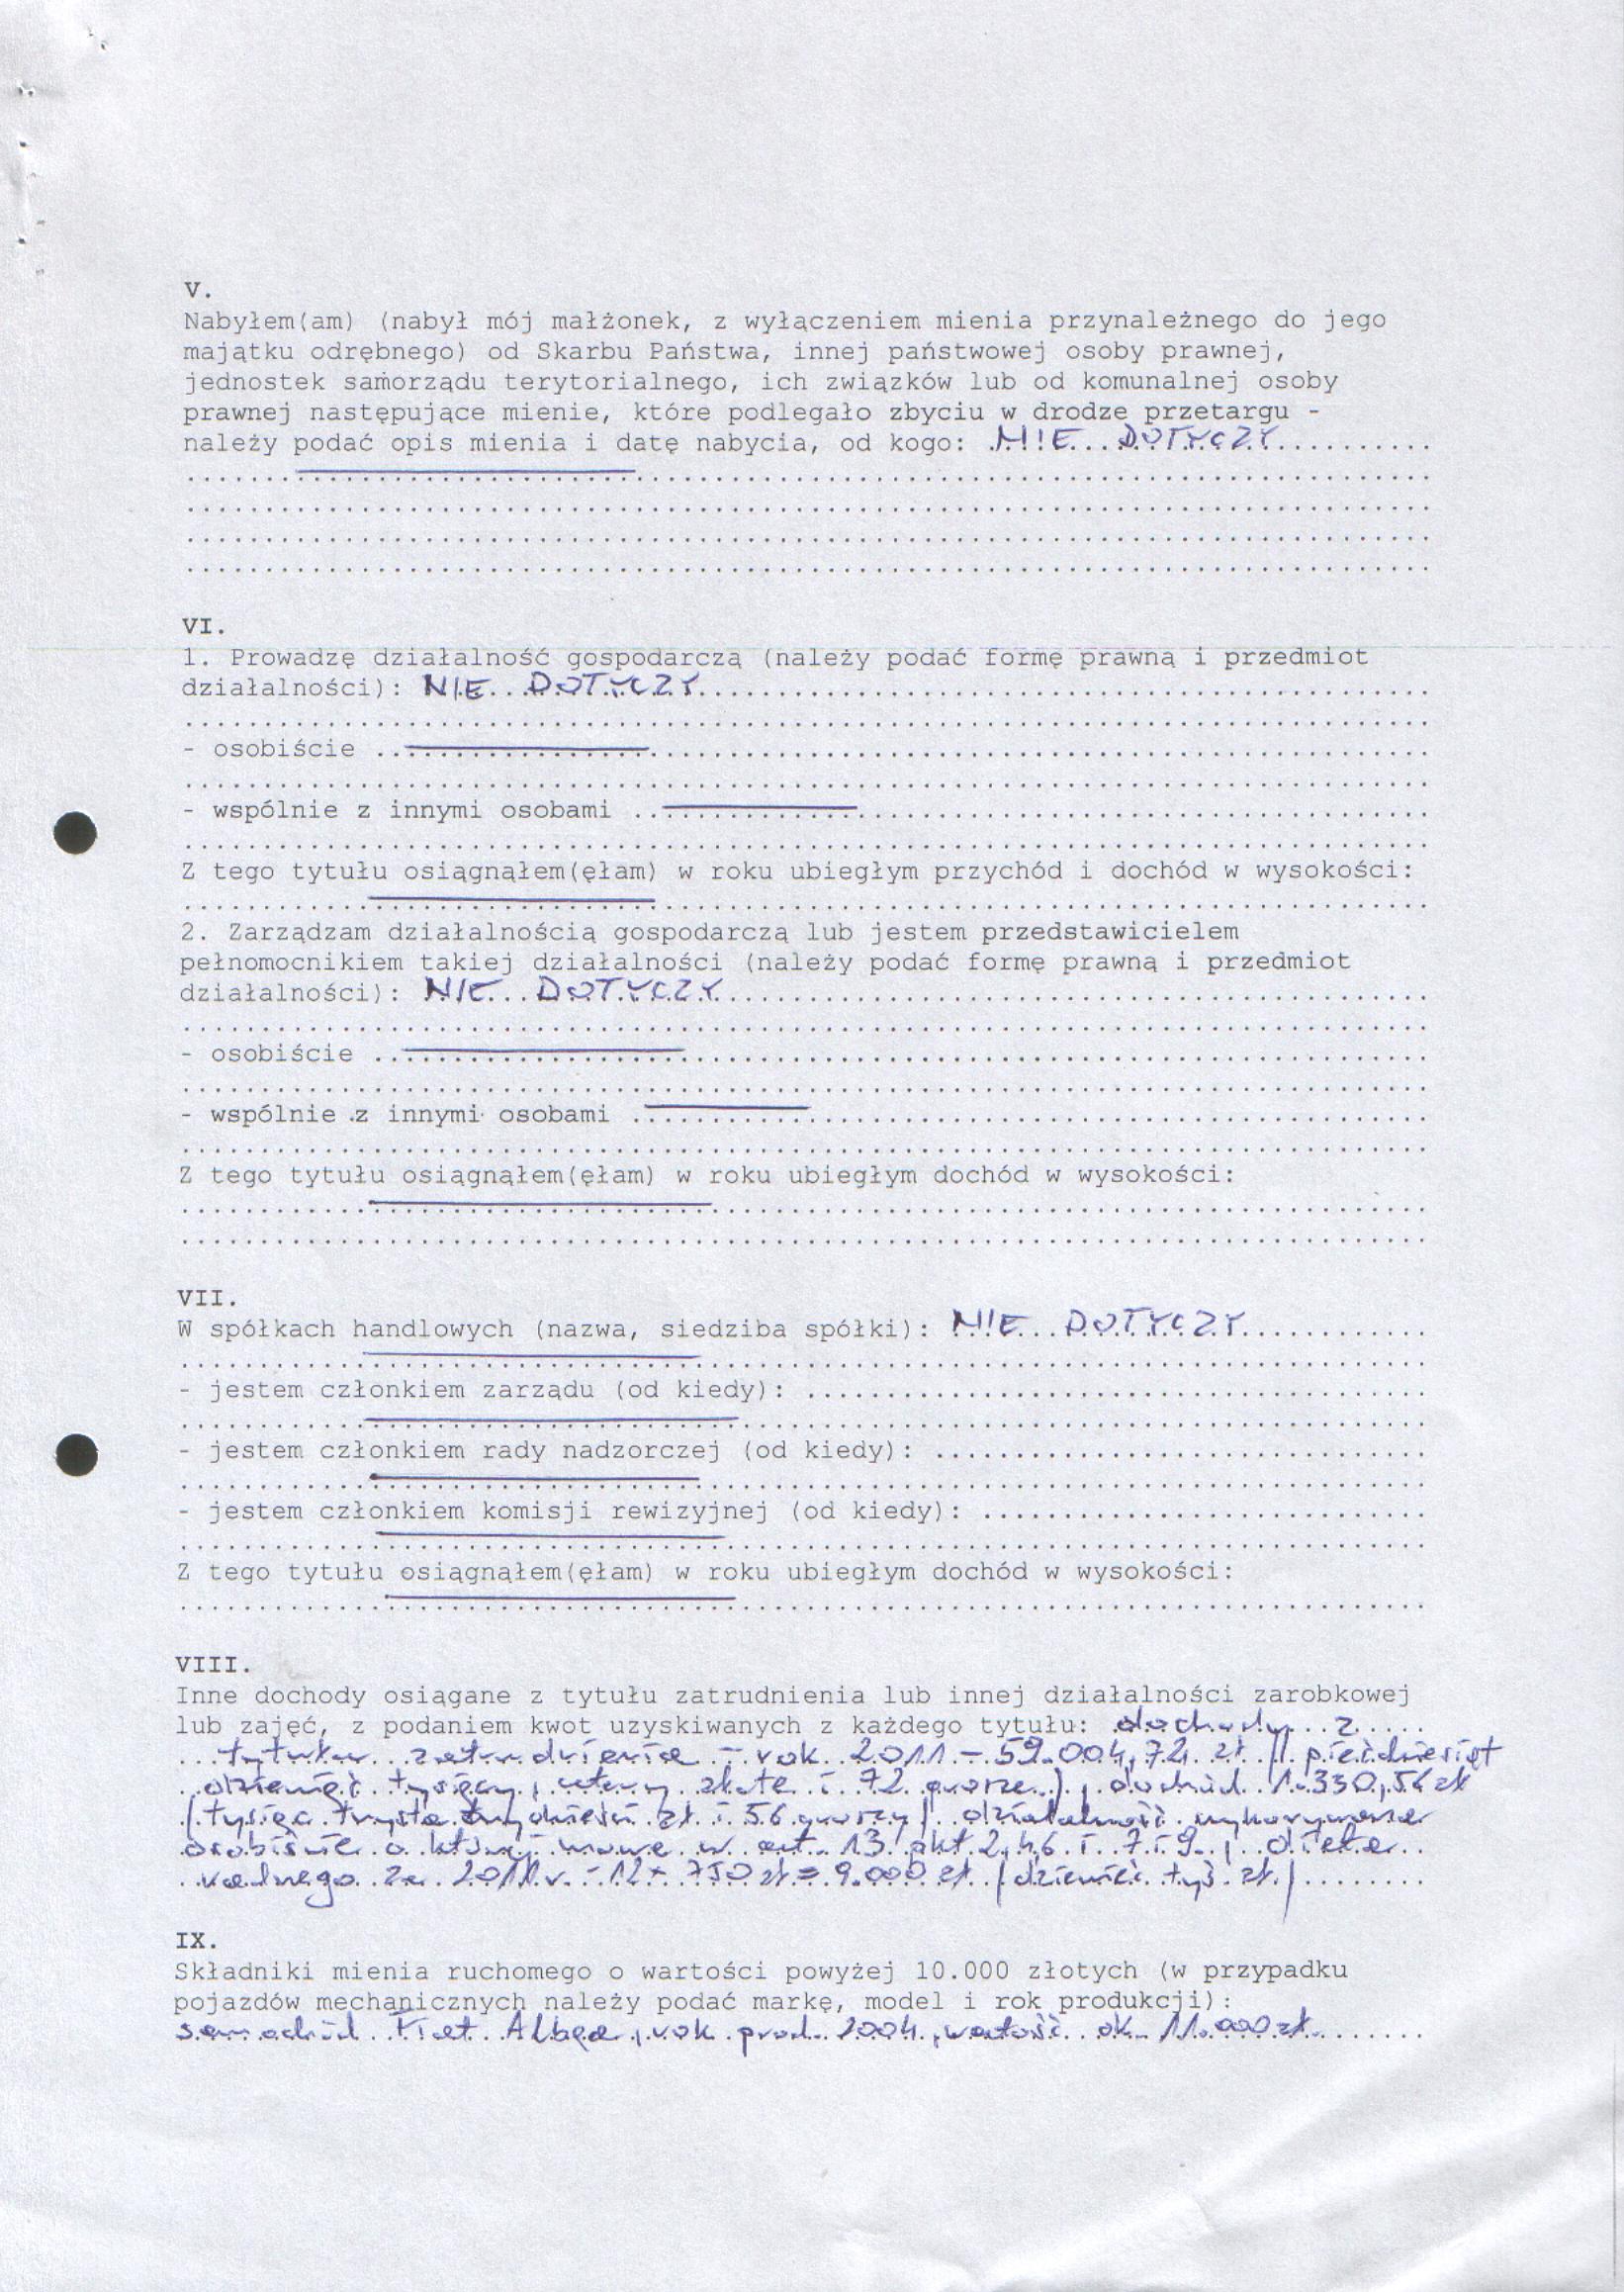 V.
Nabyłem(am) (nabył mój małżonek, z wyłączeniem mienia przynależnego do jego
majątku odrębnego) od Skarbu Państwa, innej państwowej osoby prawnej,
jednostek samorządu terytorialnego, ich związków lub od komunalnej osoby
prawnej następujące mienie, które podlegało zbyciu w drodze przetargu -
należy podać opis mienia i datę nabycia, od kogo: NIE DOTYCZY
VI.
1. Prowadzę działalność gospodarczą (należy podać formę prawną i przedmiot
działalności): NIE DOTYCZY
- osobiście
- wspólnie z innymi osobami
Z tego tytułu osiągnąłem(ęłam) w roku ubiegłym przychód i dochód w wysokości:
2. Zarządzam działalnością gospodarczą lub jestem przedstawicielem
pełnomocnikiem takiej działalności (należy podać formę prawną i przedmiot
działalności): NIE DOTYCZY
- osobiście
- wspólnie z innymi osobami
Z tego tytułu osiągnąłem(ęłam) w roku ubiegłym dochód w wysokości:
VII.
W spółkach handlowych (nazwa, siedziba spółki): NIE DOTYCZY
- jestem członkiem zarządu (od kiedy):
- jestem członkiem rady nadzorczej (od kiedy):
- jestem członkiem komisji rewizyjnej (od kiedy):
Z tego tytułu osiągnąłem(ęłam) w roku ubiegłym dochód w wysokości:
VIII.
Inne dochody osiągane z tytułu zatrudnienia lub innej działalności zarobkowej
lub zajęć, z podaniem kwot uzyskiwanych z każdego tytułu: dochody z
tytułu zatrudnienia - rok 2011 - 59.004,72 zł /pięćdziesiąt
dziewięć tysięcy, cztery złote i 72 grosze/, dochód 1.330,56 zł
/tysiąc trzysta trzydzieści zł i 56 groszy/ działalność wykonywana
osobiście o której mowa w art. 13 pkt 2,4,6 i 7 i 9, dieta
radnego za 2011 r. - 12 x 750 zł = 9.000 zł /dziewięć tyś. zł./
IX.
Składniki mienia ruchomego o wartości powyżej 10.000 złotych (w przypadku
pojazdów mechanicznych należy podać markę, model i rok produkcji):
samochód Fiat Albea, rok prod. 2004, wartość ok. 11.000 zł.